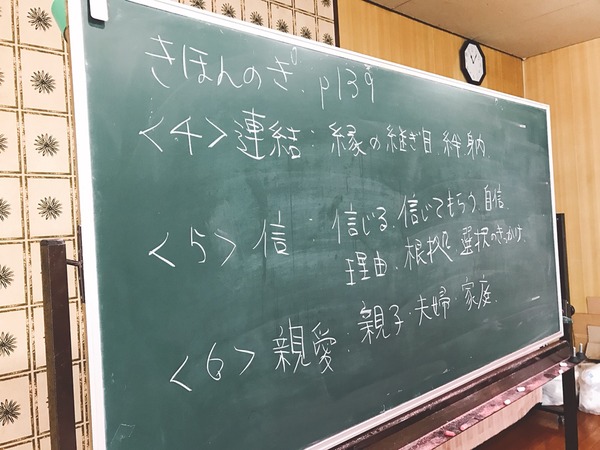 きほんのき。p139
<4>連結:縁の継ぎ目、絆、身内、
<5>信:信じる、信じてもらう、自信、
理由、根拠、選択のきっかけ、
<6>親愛:親子・夫婦・家庭、